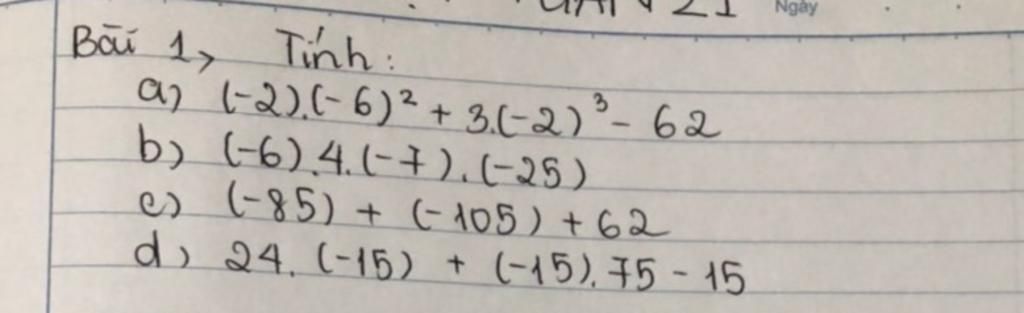 Ngày
Bài 1, Tính:
a) (-2).(-6)² + 3.(-2)³ - 62
b) (-6).4.(-7).(-25)
c) (-85) + (-105) + 62
d) 24.(-15) + (-15).75 - 15